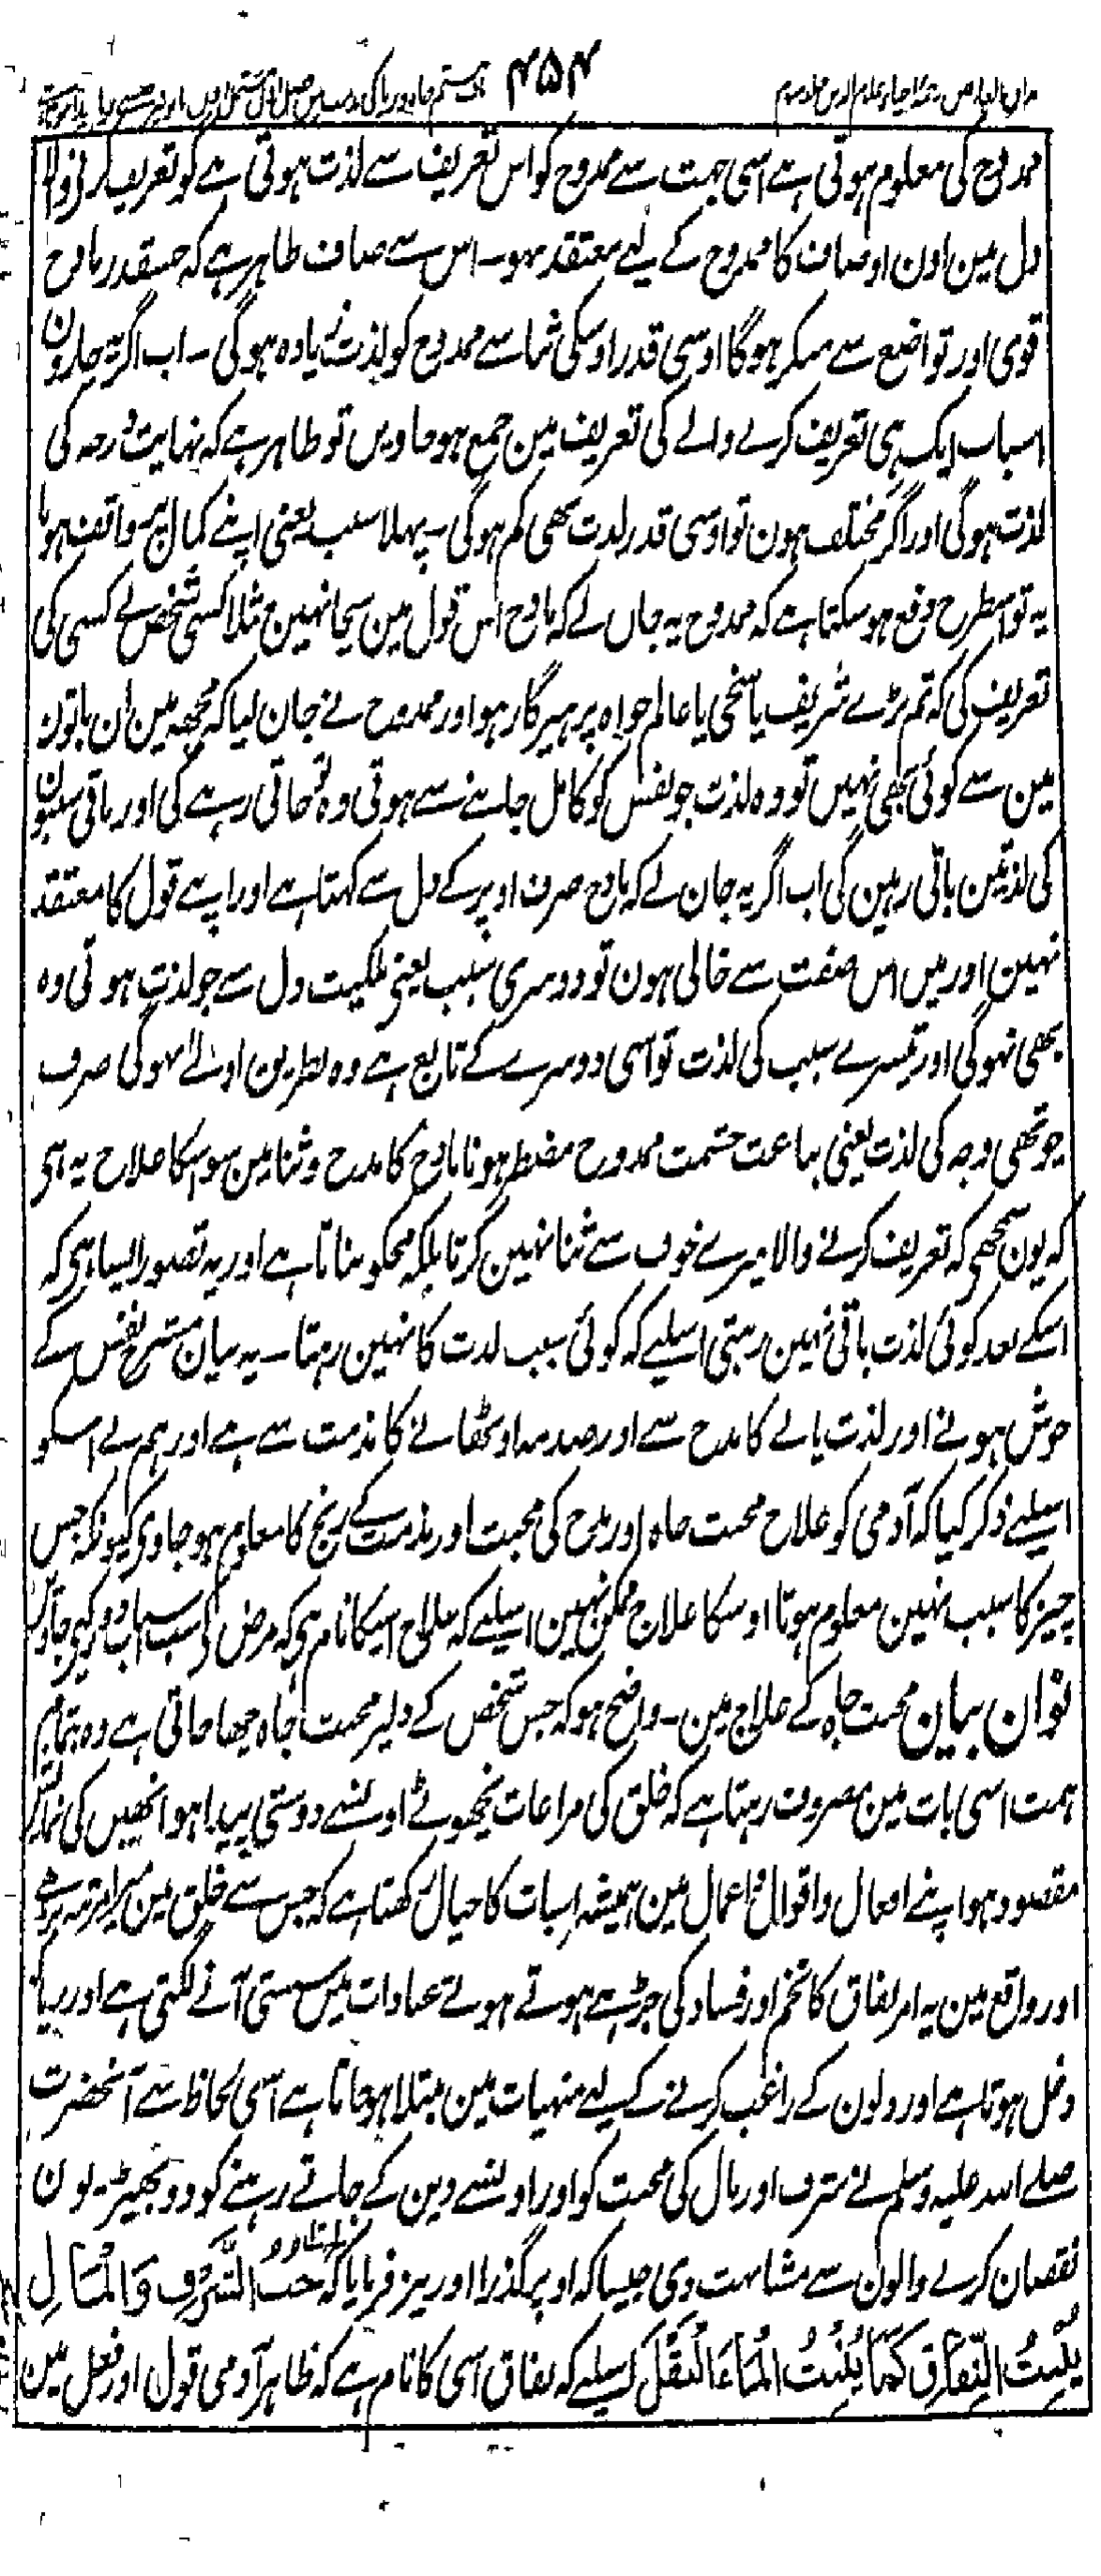 ۴۵۴
ممدوح کی معلوم ہوتی ہے اسی جہت سے ممدوح کو اس تعریف سے لذت ہوتی ہے گو تعریف کرنیوالا
دل مین اون اوصاف کا ممدوح کے لیے معتقد نہو۔ اس سے صاف ظاہر ہے کہ جسقدر مادح
قوی اور تواضع سے منکر ہوگا اوسی قدر اوسکی ثنا سے ممدوح کو لذت زیادہ ہوگی۔ اب اگر یہ چارون
اسباب ایک ہی تعریف کرنے والے کی تعریف مین جمع ہو جاویں تو ظاہر ہے کہ نہایت درجہ کی
لذت ہوگی اور اگر مختلف ہون تو اوسی قدر لذت بھی کم ہوگی۔ پہلا سبب یعنی اپنے کمال پر واقف ہونا
یہ تو اسطرح دفع ہو سکتا ہے کہ ممدوح یہ جان لے کہ مادح اس قول مین سچا نہین مثلا کسی شخص نے کسی کی
تعریف کی کہ تم بڑے شریف یا سخی یا عالم خواہ پرہیزگار ہو اور ممدوح نے جان لیا کہ مجھہ مین ان باتون
مین سے کوئی بھی نہیں تو وہ لذت جو نفس کو کامل جاننے سے ہوتی وہ تو جاتی رہے گی اور باقی سببون
کی لذتین باقی رہین گی اب اگر یہ جان لے کہ مادح صرف اوپر کے دل سے کہتا ہے اور اپنے قول کا معتقد
نہین اور میں اس صفت سے خالی ہون تو دوسری سبب یعنی ملکیت دل سے جو لذت ہوتی وہ
بھی نہوگی اور تیسرے سبب کی لذت تو اسی دوسرے کے تابع ہے وہ بطریق اولے نہوگی صرف
چوتھی وجہ کی لذت یعنی بباعث حشمت ممدوح مضطر ہونا مادح کا مدح و ثنا مین سو اسکا علاج یہ ہی
کہ یون سمجھے کہ تعریف کرنے والا میرے خوف سے ثنا نہین کرتا بلکہ مجکو بناتا ہے اور یہ تصور ایسا ہی کہ
اسکے بعد کوئی لذت باقی نہین رہتی اسلیے کہ کوئی سبب لذت کا نہین رہتا۔ یہ بیان مشرح نفس کے
خوش ہونے اور لذت پانے کا مدح سے اور صدمہ اوٹھانے کا مذمت سے ہے اور ہم نے اسکو
اسلیے ذکر کیا کہ آدمی کو علاج محبت جاہ اور مدح کی محبت اور مذمت کے رنج کا معلوم ہو جاوی کیونکہ جس
چیز کا سبب نہین معلوم ہوتا اوسکا علاج ممکن نہین اسیلیے کہ علاج اسیکا نام ہی کہ مرض کی سبب اسباب دور کیے جاویں
نوان بیان محبت جاہ کے علاج مین۔ واضح ہو کہ جس شخص کے دلپر محبت جاہ چھا جاتی ہے وہ بتمام
ہمت اسی بات مین مصروف رہتا ہے کہ خلق کی مراعات نچھوٹے اونسے دوستی پیدا ہو انھیں کی نمائش
مقصود ہو اپنے افعال و اقوال و اعمال مین ہمیشہ اسبات کا خیال رکھتا ہے کہ جس سے خلق مین میرا مرتبہ بڑھے
اور واقع مین یہ امر نفاق کا تخم اور فساد کی جڑ ہے ہوتے ہوتے عبادات میں سستی آنے لگتی ہے اور ریا کا
دخل ہوتا ہے اور دلون کے راغب کرنے کے لیے منہیات مین مبتلا ہو جاتا ہے اسی لحاظ سے آنحضرت
صلے اللہ علیہ وسلم نے شرف اور مال کی محبت کو اور اونسے دین کے جاتے رہنے کو دو بھیڑیون
نقصان کرنے والون سے مشابہت دی جیسا کہ اوپر گذرا اور نیز فرمایا کہ حُبُّ الشَّرَفِ وَالْمَالِ
يُنْبِتُ النِّفَاقَ كَمَا يُنْبِتُ الْمَاءُ الْبَقْلَ اسیلیے کہ نفاق اسی کا نام ہے کہ ظاہر آدمی قول اور فعل مین